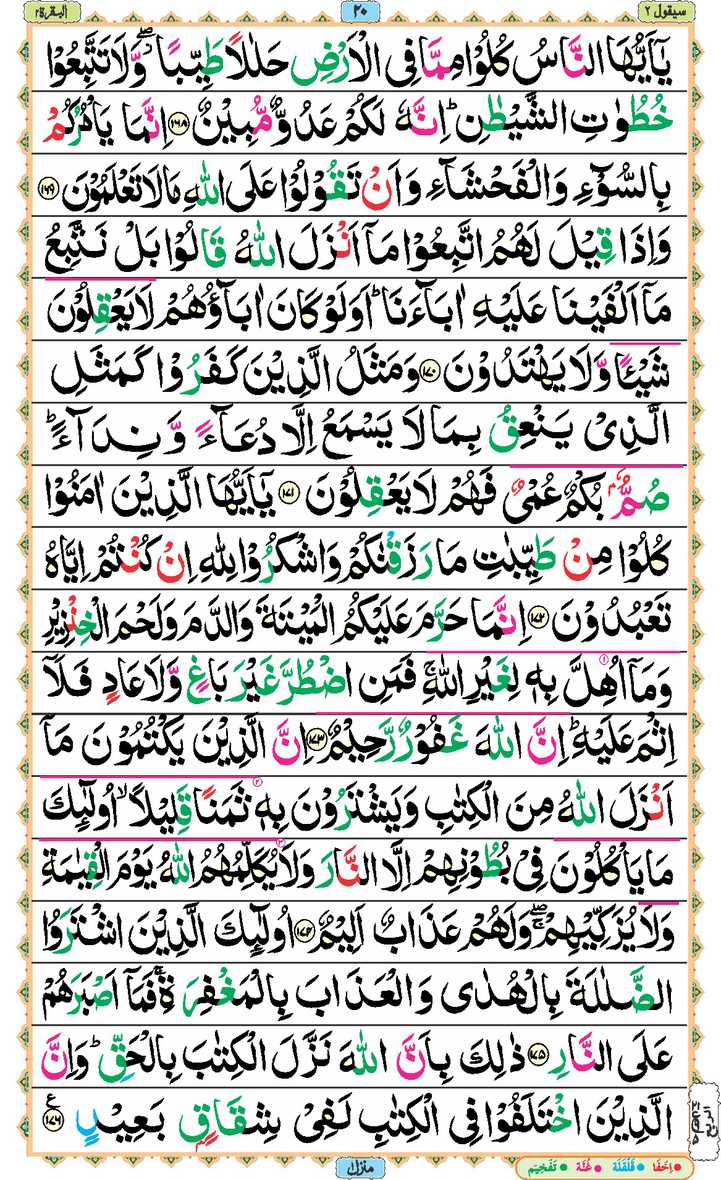 سيقول ٢
٢٠
البقرة ٢
يٰۤاَيُّهَا النَّاسُ كُلُوْا مِمَّا فِى الْاَرْضِ حَلٰلًا طَيِّبًا ۖۗ وَّلَا تَتَّبِعُوْا
خُطُوٰتِ الشَّيْطٰنِؕ اِنَّهٗ لَكُمْ عَدُوٌّ مُّبِيْنٌ ﴿۱۶۸﴾ اِنَّمَا يَاْمُرُكُمْ
بِالسُّوْٓءِ وَالْفَحْشَآءِ وَاَنْ تَقُوْلُوْا عَلَى اللّٰهِ مَا لَا تَعْلَمُوْنَ ﴿۱۶۹﴾
وَاِذَا قِيْلَ لَهُمُ اتَّبِعُوْا مَاۤ اَنْزَلَ اللّٰهُ قَالُوْا بَلْ نَتَّبِعُ
مَاۤ اَلْفَيْنَا عَلَيْهِ اٰبَآءَنَاؕ اَوَلَوْ كَانَ اٰبَآؤُهُمْ لَا يَعْقِلُوْنَ
شَيْـًٔا وَّلَا يَهْتَدُوْنَ ﴿۱۷۰﴾ وَمَثَلُ الَّذِيْنَ كَفَرُوْا كَمَثَلِ
الَّذِىْ يَنْعِقُ بِمَا لَا يَسْمَعُ اِلَّا دُعَآءً وَّنِدَآءًؕ
صُمٌّۢ بُكْمٌ عُمْىٌ فَهُمْ لَا يَعْقِلُوْنَ ﴿۱۷۱﴾ يٰۤاَيُّهَا الَّذِيْنَ اٰمَنُوْا
كُلُوْا مِنْ طَيِّبٰتِ مَا رَزَقْنٰكُمْ وَاشْكُرُوْا لِلّٰهِ اِنْ كُنْتُمْ اِيَّاهُ
تَعْبُدُوْنَ ﴿۱۷۲﴾ اِنَّمَا حَرَّمَ عَلَيْكُمُ الْمَيْتَةَ وَالدَّمَ وَلَحْمَ الْخِنْزِيْرِ
وَمَاۤ اُهِلَّ بِهٖ لِغَيْرِ اللّٰهِۚ فَمَنِ اضْطُرَّ غَيْرَ بَاغٍ وَّلَا عَادٍ فَلَاۤ
اِثْمَ عَلَيْهِؕ اِنَّ اللّٰهَ غَفُوْرٌ رَّحِيْمٌ ﴿۱۷۳﴾ اِنَّ الَّذِيْنَ يَكْتُمُوْنَ مَاۤ
اَنْزَلَ اللّٰهُ مِنَ الْكِتٰبِ وَيَشْتَرُوْنَ بِهٖ ثَمَنًا قَلِيْلًا ۙ اُولٰٓئِكَ
مَا يَاْكُلُوْنَ فِىْ بُطُوْنِهِمْ اِلَّا النَّارَ وَلَا يُكَلِّمُهُمُ اللّٰهُ يَوْمَ الْقِيٰمَةِ
وَلَا يُزَكِّيْهِمْ ۖۚ وَلَهُمْ عَذَابٌ اَلِيْمٌ ﴿۱۷۴﴾ اُولٰٓئِكَ الَّذِيْنَ اشْتَرَوُا
الضَّلٰلَةَ بِالْهُدٰى وَالْعَذَابَ بِالْمَغْفِرَةِۚ فَمَاۤ اَصْبَرَهُمْ
عَلَى النَّارِ ﴿۱۷۵﴾ ذٰلِكَ بِاَنَّ اللّٰهَ نَزَّلَ الْكِتٰبَ بِالْحَقِّؕ وَاِنَّ
الَّذِيْنَ اخْتَلَفُوْا فِى الْكِتٰبِ لَفِىْ شِقَاقٍۭ بَعِيْدٍ ﴿۱۷۶﴾ ع
الربع
منزل
اِخفَا قَلْقَلَه غُنَّه تَفْخِيْم